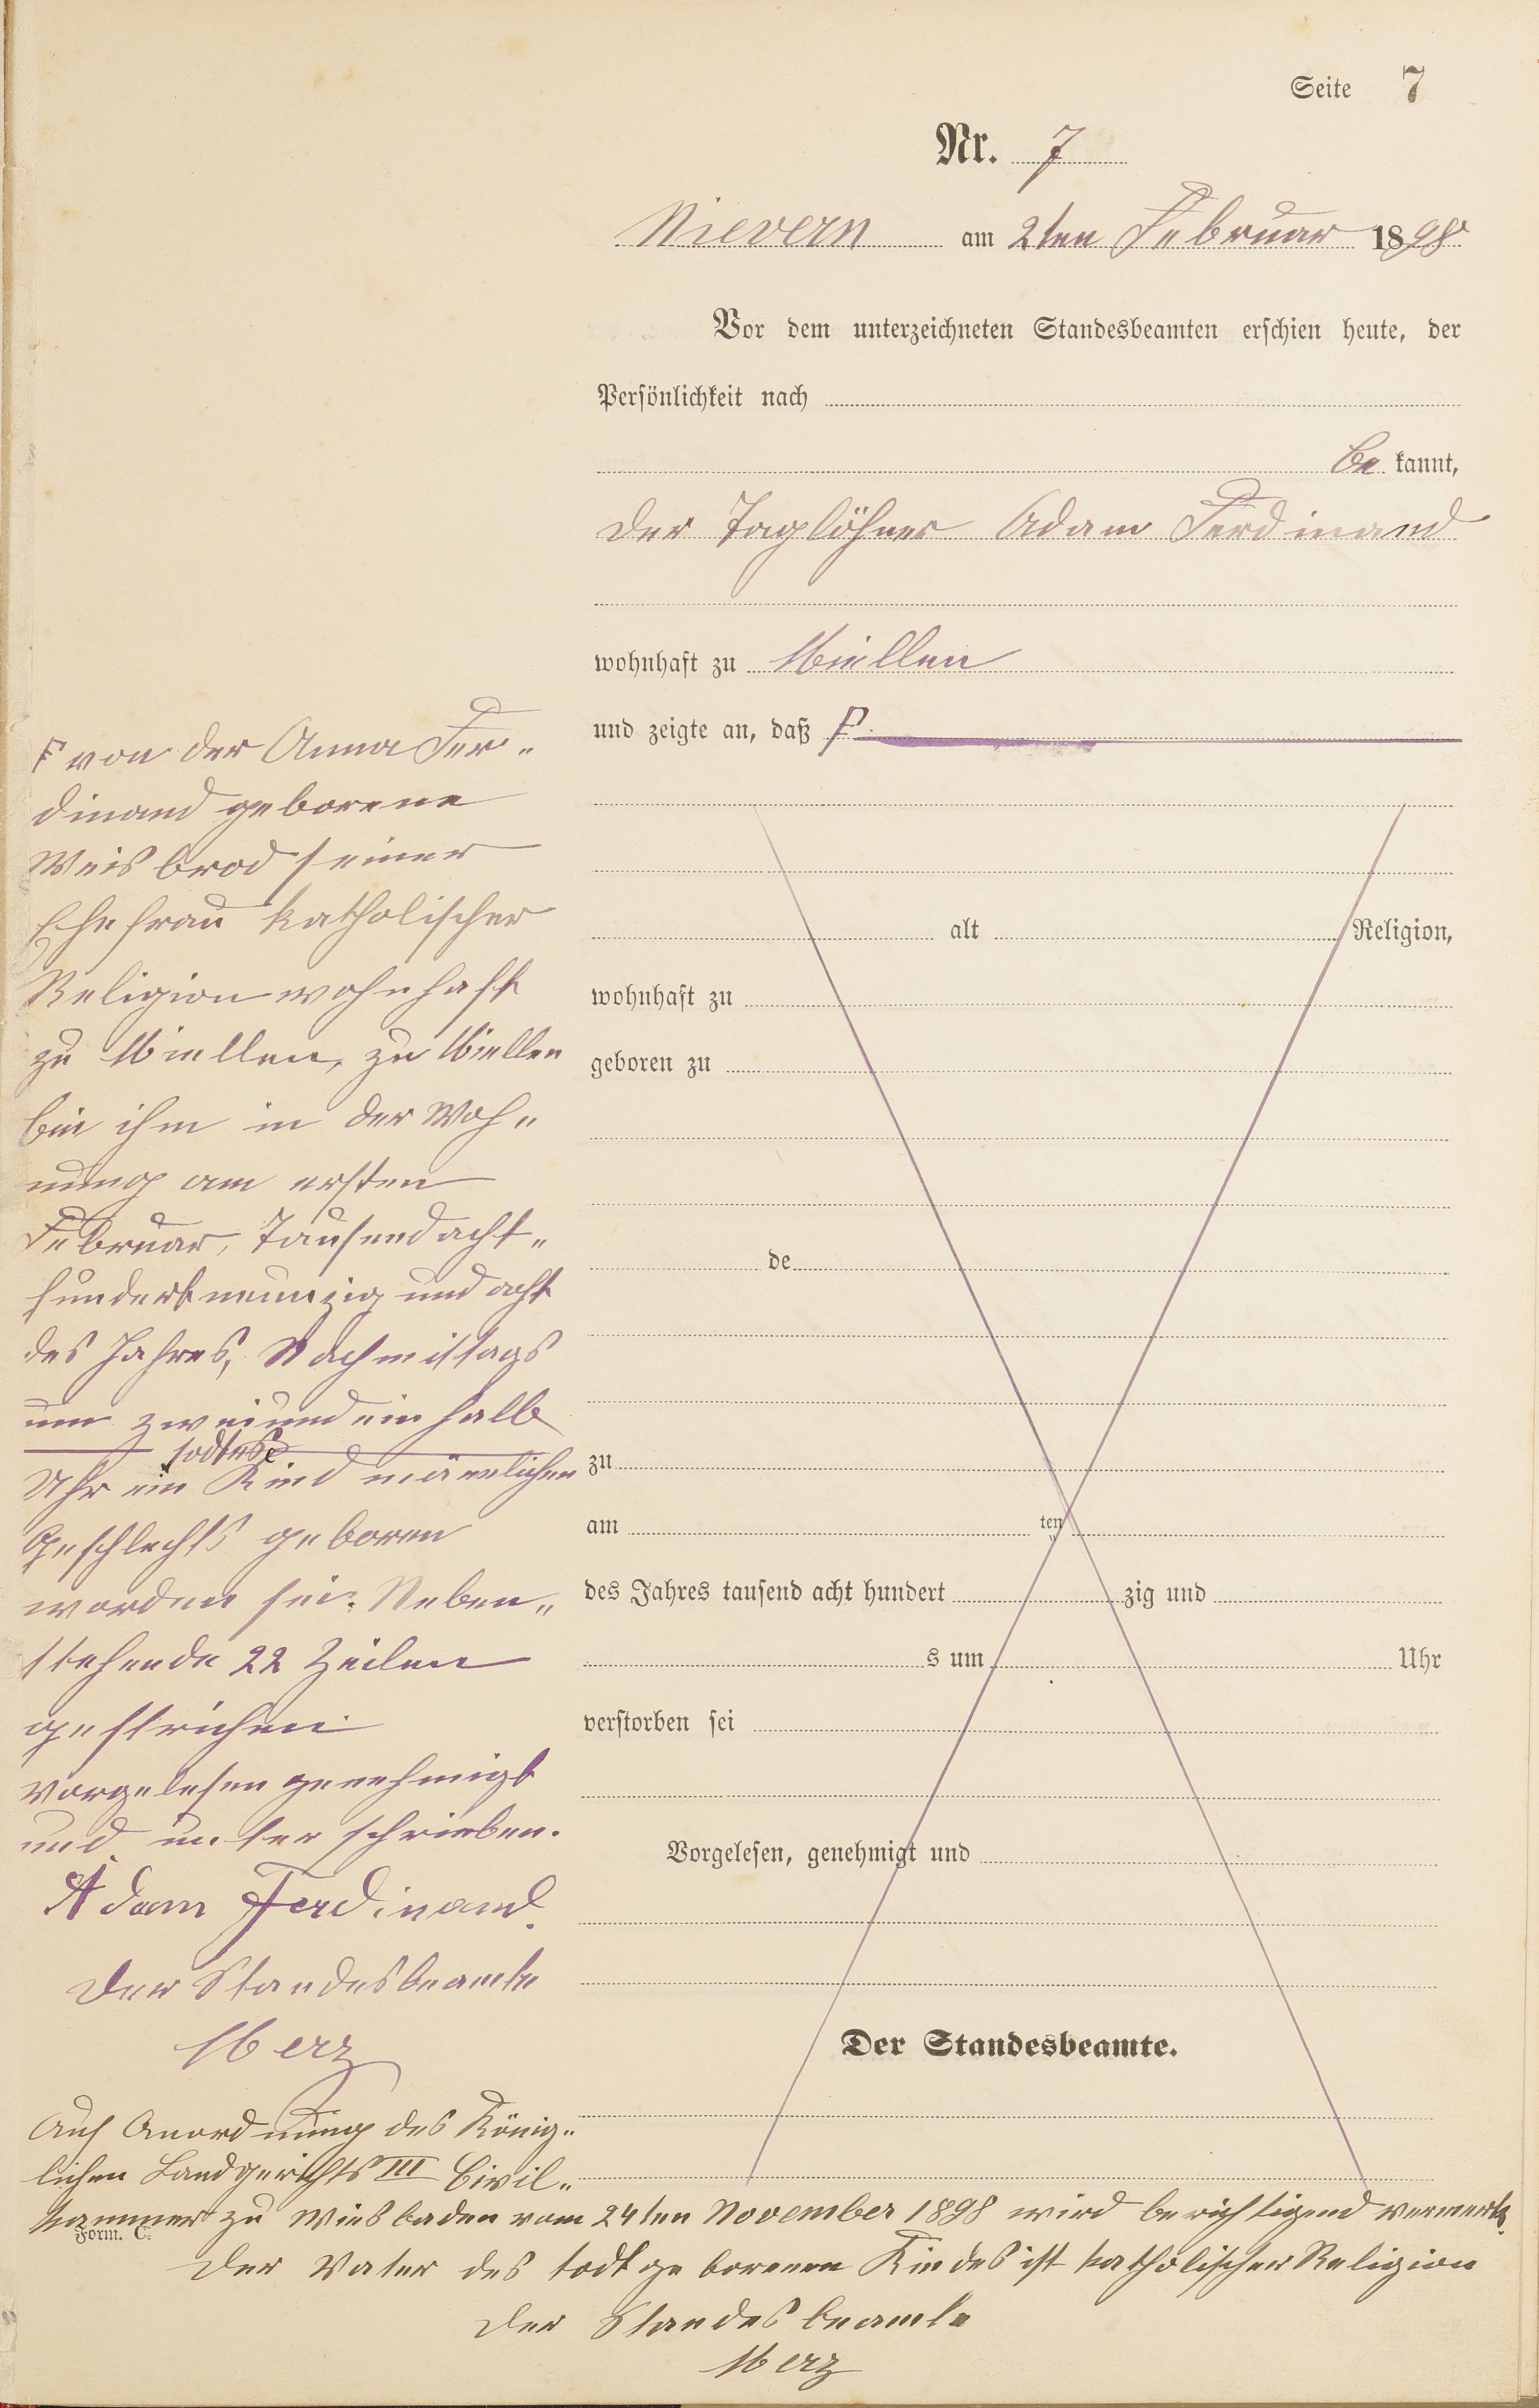 Seite 7
Nr. 7
Nievern am 2ten Februar 1898
Vor dem unterzeichneten Standesbeamten erschien heute, der
Persönlichkeit nach
be kannt,
der Taglöhner Adam Ferdinand
wohnhaft zu Miellen
und zeigte an, daß F
F von der Anna Fer„
dinand geborene
Weisbrod seiner
Ehefrau katholischer
Religion wohnhaft
zu Miellen, zu Miellen
bei ihm in der Woh„
nung am ersten
Februar, Tausend acht„
hundert neunzig und acht
des Jahres, Nachmittags
um zwei und ein halb
todtes
Uhr ein Kind männlichen
Geschlechts geboren
worden sei. Neben„
stehende 22 Zeilen
gestrichen
vorgelesen genehmigt
und unterschrieben.
Adam Ferdinand.
Der Standesbeamte
Merz
alt Religion,
wohnhaft zu
geboren zu
de
zu
am ten
des Jahres tausend acht hundert zig und
s um Uhr
verstorben sei
Vorgelesen, genehmigt und
Der Standesbeamte.
Auf Anordnung des König„
lichen Landgerichts III Civil„
kammer zu Wiesbaden vom 24ten November 1898 wird berichtigend vermerkt.
Form. C.
Der Vater des todtgeborenen Kindes ist katholischer Religion
Der Standesbeamte
Merz